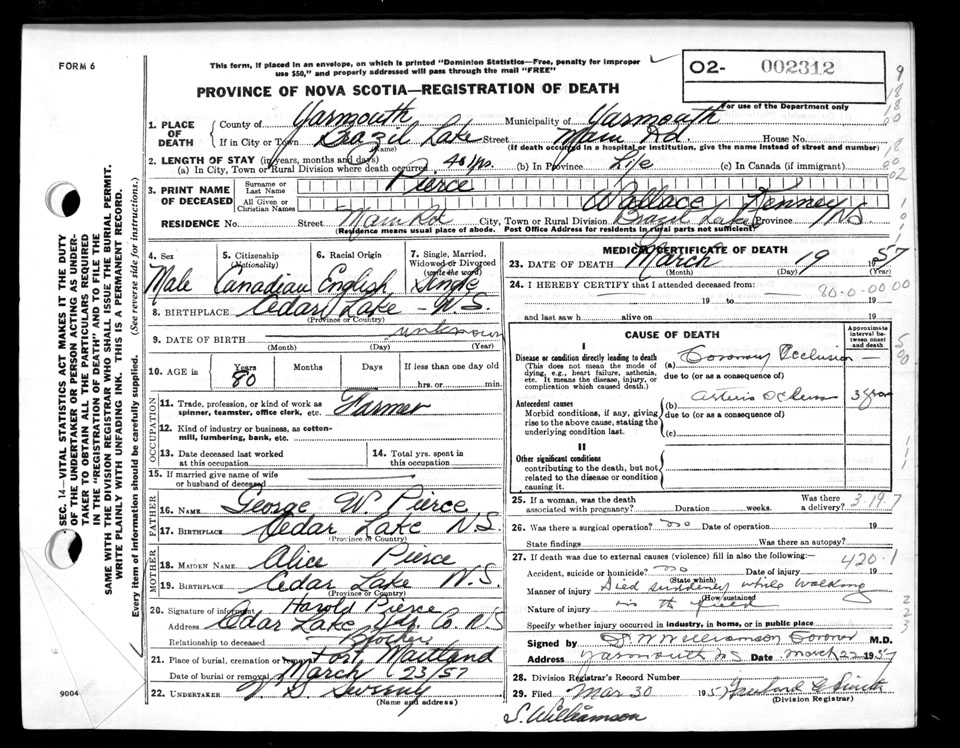 FORM 6
This form, if placed in an envelope, on which is printed "Dominion Statistics—Free, penalty for improper
use $50," and properly addressed will pass through the mail "FREE"
O2- 002312
For use of the Department only
PROVINCE OF NOVA SCOTIA—REGISTRATION OF DEATH
1. PLACE OF DEATH
County of Yarmouth Municipality of Yarmouth
If in City or Town Brazil Lake Street Main Rd. House No.
(Name) (If death occurred in a hospital or institution, give the name instead of street and number)
2. LENGTH OF STAY (in years, months and days)
(a) In City, Town or Rural Division where death occurred 40 yrs. (b) In Province Life (c) In Canada (if immigrant)
3. PRINT NAME OF DECEASED
Surname or Last Name Pierce
All Given or Christian Names Wallace Kenney
RESIDENCE No. Street Main Rd City, Town or Rural Division Brazil Lake Province N.S.
(Residence means usual place of abode. Post Office Address for residents in rural parts not sufficient)
4. Sex Male
5. Citizenship (Nationality) Canadian
6. Racial Origin English
7. Single, Married, Widowed or Divorced (write the word) Single
8. BIRTHPLACE Cedar Lake - N.S.
(Province or Country)
9. DATE OF BIRTH unknown
(Month) (Day) (Year)
10. AGE in Years 80 Months Days If less than one day old
hrs. or min.
OCCUPATION
11. Trade, profession, or kind of work as
spinner, teamster, office clerk, etc. Farmer
12. Kind of industry or business, as cotton-
mill, lumbering, bank, etc.
13. Date deceased last worked at this occupation
14. Total yrs. spent in this occupation
15. If married give name of wife
or husband of deceased
FATHER
16. NAME George W. Pierce
17. BIRTHPLACE Cedar Lake N.S.
(Province or Country)
MOTHER
18. MAIDEN NAME Alice Pierce
19. BIRTHPLACE Cedar Lake N.S.
(Province or Country)
20. Signature of informant Harold Pierce
Address Cedar Lake Yar. Co. N.S
Relationship to deceased Brother
21. Place of burial, cremation or removal Port Maitland
Date of burial or removal March 23/57
22. UNDERTAKER V. S. Sweeny
(Name and address)
MEDICAL CERTIFICATE OF DEATH
23. DATE OF DEATH March 19 1957
(Month) (Day) (Year)
24. I HEREBY CERTIFY that I attended deceased from:
80-0-00 00
19 to 19
and last saw h alive on 19
CAUSE OF DEATH
Approximate interval between onset and death
I
Disease or condition directly leading to death
(This does not mean the mode of
dying, e.g., heart failure, asthenia,
etc. It means the disease, injury, or
complication which caused death.)
(a) Coronary Occlusion —
due to (or as a consequence of)
Antecedent causes
Morbid conditions, if any, giving
rise to the above cause, stating the
underlying condition last.
(b)
due to (or as a consequence of)
(c)
II
Other significant conditions
contributing to the death, but not
related to the disease or condition
causing it.
25. If a woman, was the death
associated with pregnancy? Duration weeks. Was there a delivery? 3.19.7
26. Was there a surgical operation? no Date of operation 19
State findings Was there an autopsy?
27. If death was due to external causes (violence) fill in also the following:
420.1
Accident, suicide or homicide? no Date of injury 19
(State which)
Manner of injury Died suddenly while walking
(How sustained)
Nature of injury in the field
Specify whether injury occurred in industry, in home, or in public place
Signed by S. W. Williamson Coroner M.D.
Address Yarmouth N.S Date March 22 1957
28. Division Registrar's Record Number
29. Filed Mar 30 1957
(Division Registrar)
S. Williamson
SEC. 14—VITAL STATISTICS ACT MAKES IT THE DUTY
OF THE UNDERTAKER OR PERSON ACTING AS UNDER-
TAKER TO OBTAIN ALL THE PARTICULARS REQUIRED
IN THE "REGISTRATION OF DEATH" AND TO FILE THE
SAME WITH THE DIVISION REGISTRAR WHO SHALL ISSUE THE BURIAL PERMIT.
WRITE PLAINLY WITH UNFADING INK. THIS IS A PERMANENT RECORD.
Every item of information should be carefully supplied. (See reverse side for instructions.)
9004